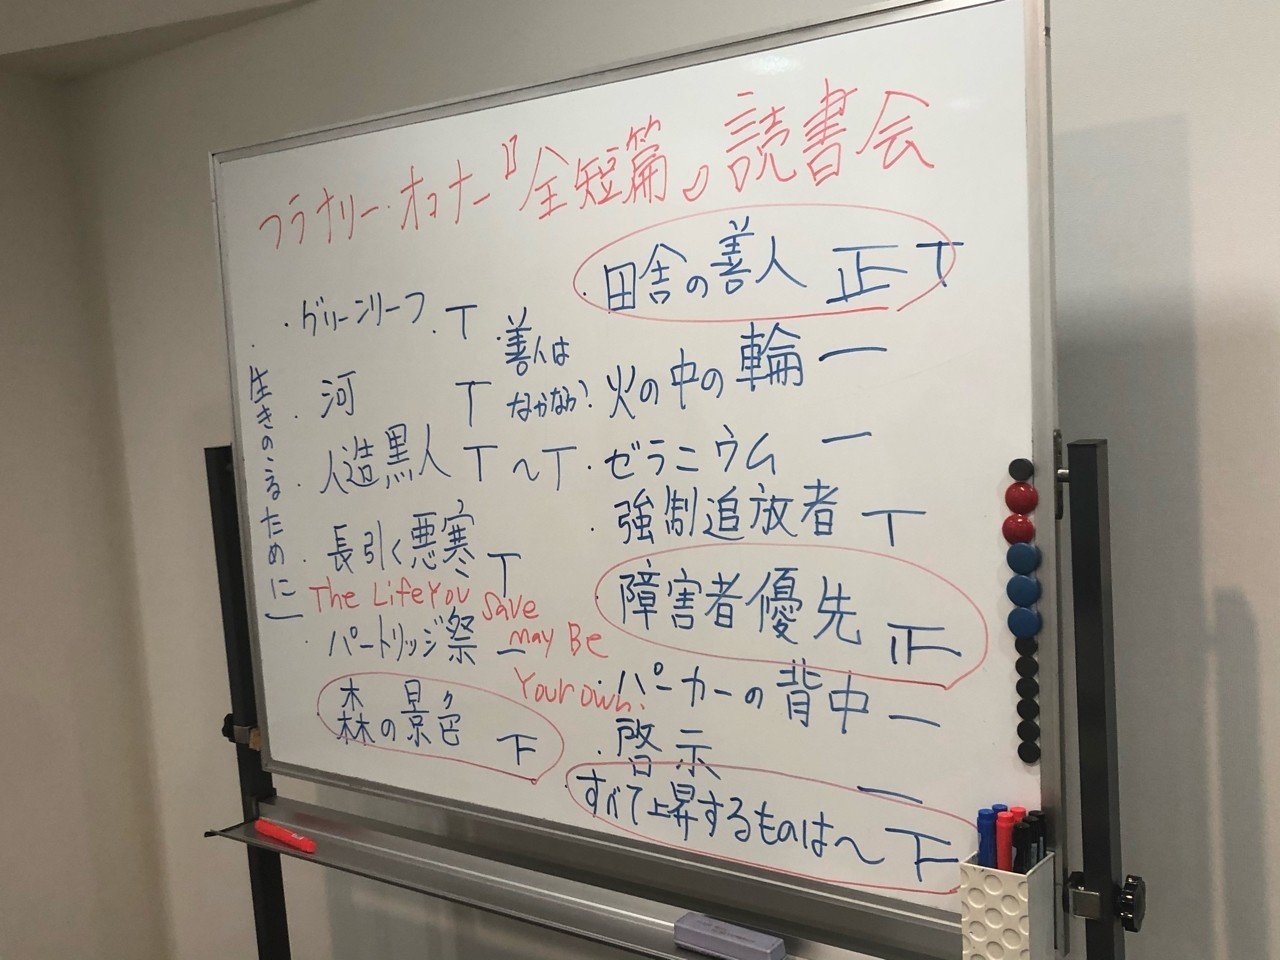 フラナリー・オコナー『全短篇』読書会
・グリーンリーフ T
・河 T
・人造黒人 T
・長引く悪寒 T
・パートリッジ祭 一
森の景色 下
・生きのこるために 一
The Life You Save may Be Your own.
・善人はなかなか? 〜T
・田舎の善人 正T
火の中の輪 一
・ゼラニウム 一
・強制追放者 T
・障害者優先 正
・パーカーの背中 一
・啓示 一
・すべて上昇するものは〜 下